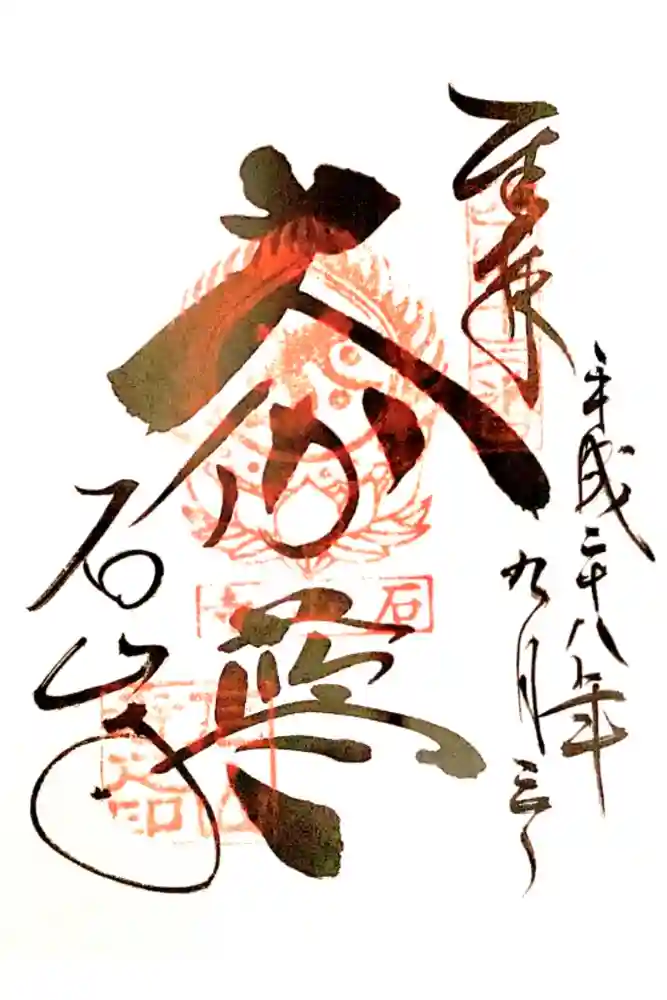 奉拝
平成二十八年
九月三日
大悲殿
石山寺
石
寺